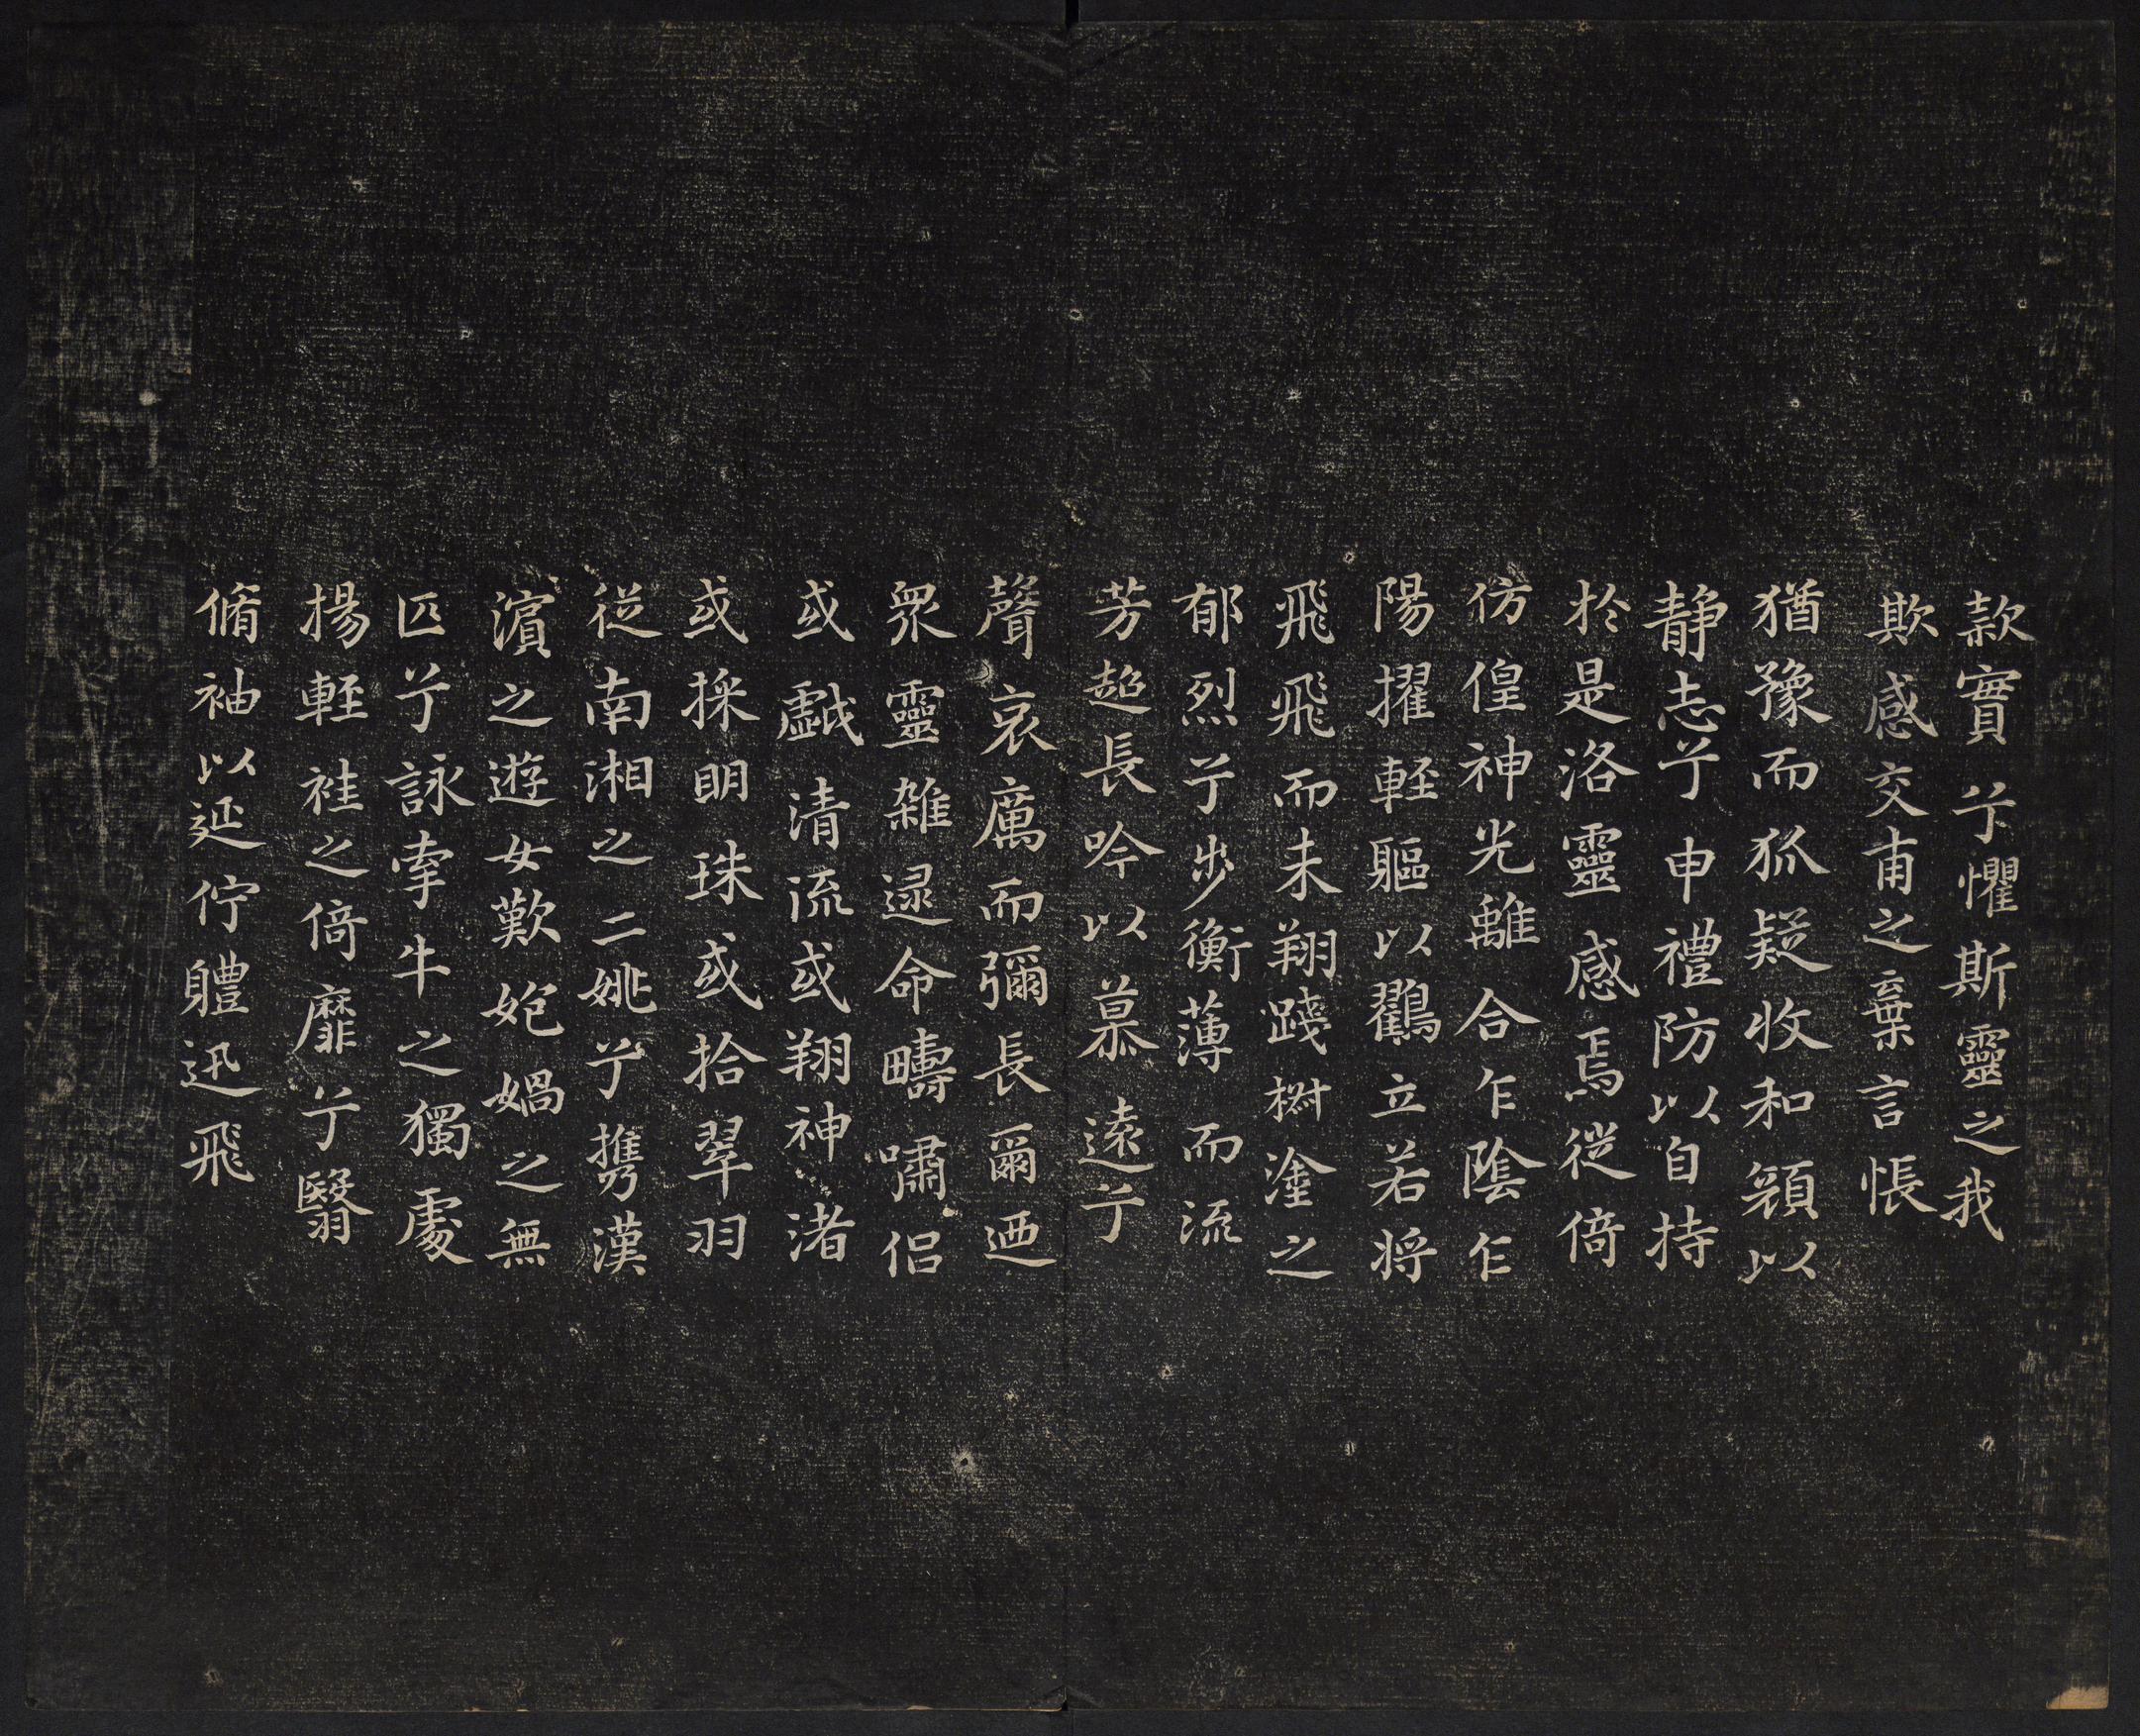 款實兮懼斯靈之我
欺感交甫之棄言悵
猶豫而狐疑收和顏以
静志兮申禮防以自持
於是洛靈感焉從倚
仿偟神光離合乍陰乍
陽擢軽軀以鸛立若将
飛飛而未翔踐椒塗之
郁烈兮步衡薄而流
芳超長吟以慕遠兮
聲哀厲而彌長爾迺
衆靈雜遝命疇嘯侣
或戱清流或翔神渚
或採明珠或拾翠羽
従南湘之二姚兮携漢
濱之遊女歎妑媧之無
匹兮詠牽牛之獨處
揚軽袿之倚靡兮翳
脩袖以延佇軆迅飛